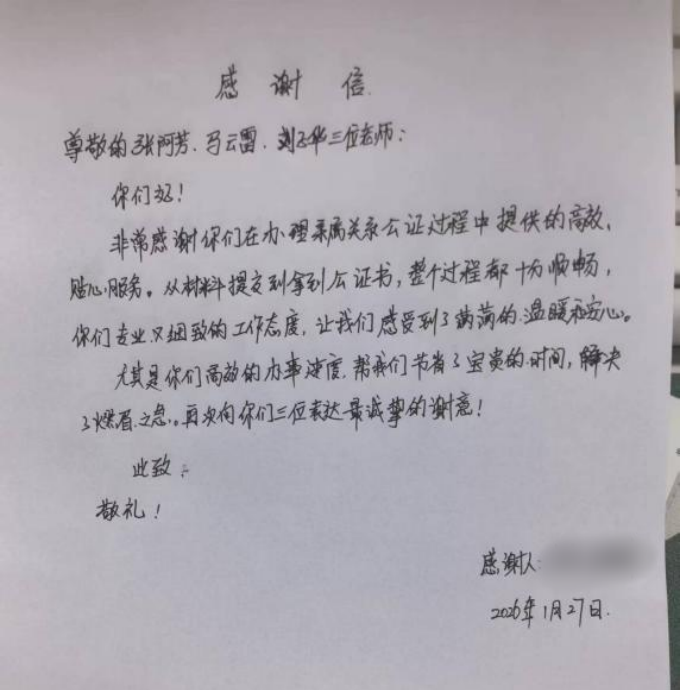 感谢信
尊敬的张阿芳、马云雷、刘玉华三位老师：
你们好！
非常感谢你们在办理亲属关系公证过程中提供的高效、
贴心服务。从材料提交到拿到公证书，整个过程都十分顺畅，
你们专业又细致的工作态度，让我们感受到了满满的温暖和安心。
尤其是你们高效的办事速度，帮我们节省了宝贵的时间，解决
了燃眉之急。再次向你们三位表达最诚挚的谢意！
此致：
敬礼！
感谢人：
2026年1月27日.